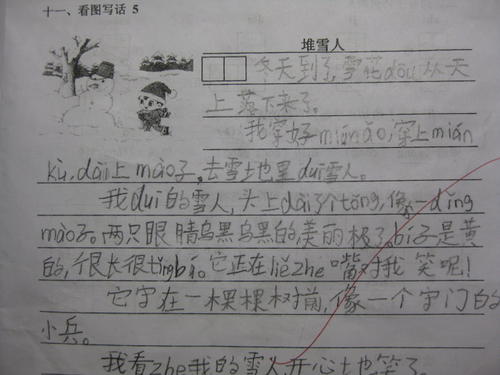 十一、看图写话 5
堆雪人
冬天到了，雪花dōu从天
上落下来了。
我穿好mián ǎo，穿上mián
kù，dài上mào子，去雪土也里duī雪人。
我duī的雪人，头上dài个tǒng，像一dǐng
mào子。两只眼睛乌黑乌黑的美丽极了。bí子是黄
的，个很长很。它正在liězhe嘴对我笑呢！
它守在一棵棵树前，像一个守门的
小兵。
我看zhe我的雪人，开心土也笑了。